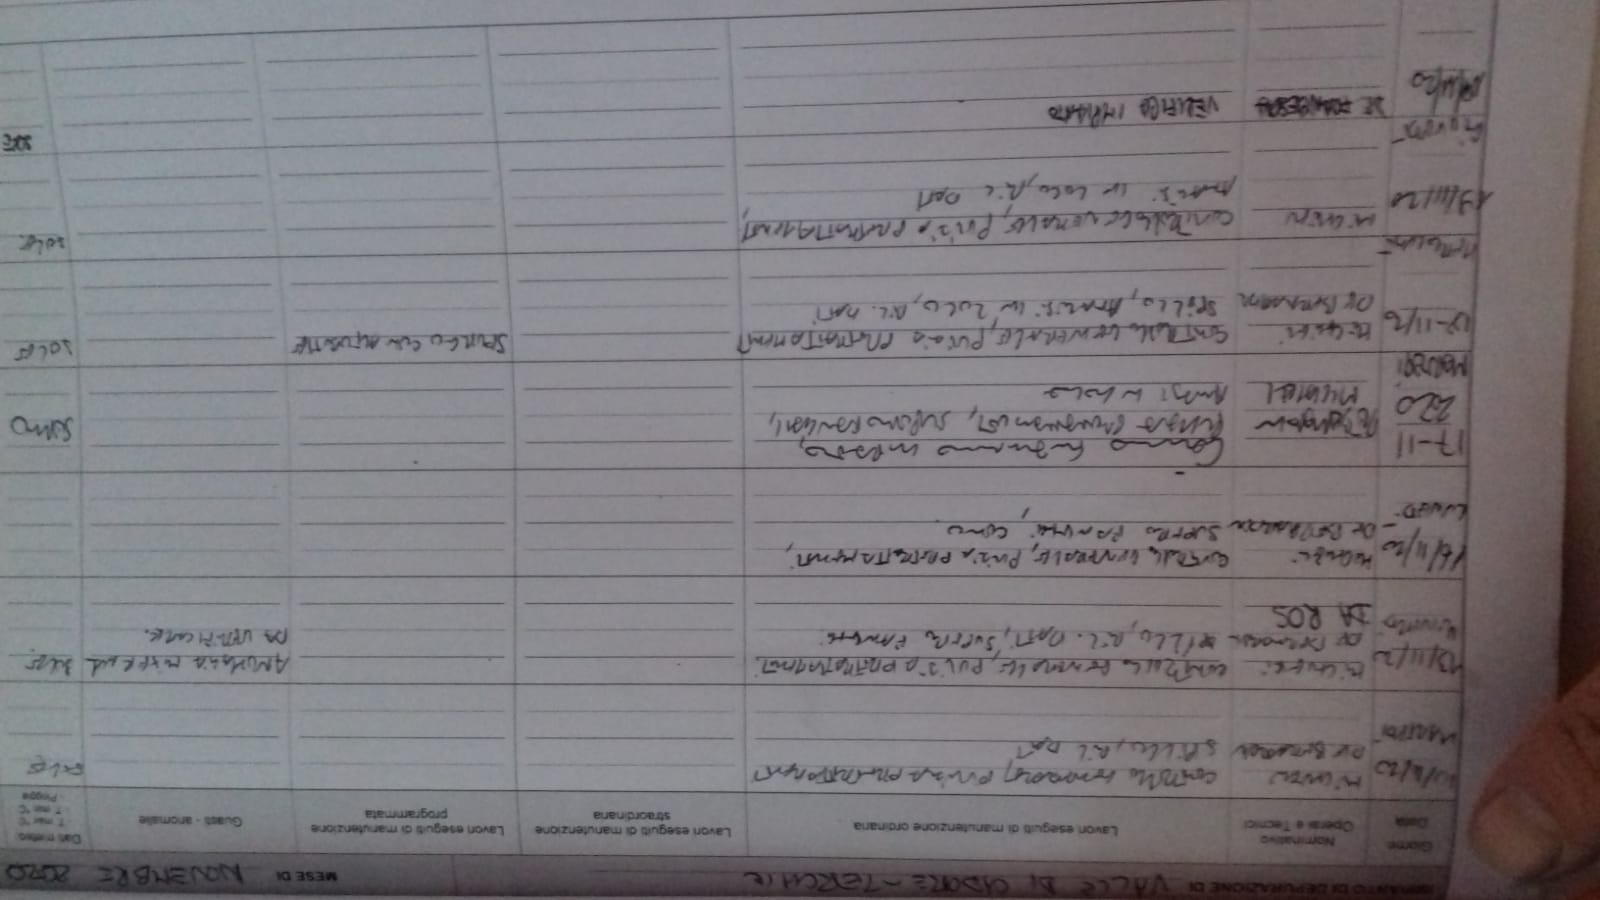 IMPIANTO DI DEPURAZIONE DI VALLE DI CADORE - MESE DI NOVEMBRE 2020
Giorno
Data
Nominativo
Operai e Tecnici
Lavori eseguiti di manutenzione ordinaria
Lavori eseguiti di manutenzione
straordinaria
Lavori eseguiti di manutenzione
programmata
Guasti - anomalie
Dati meteo:
- T. max °C
- T. min °C
- Pioggia
10/11/20
MARTEDI
DE BERNARDIN
CONTROLLO GENERALE, PULIZIA PRETRATTAMENTI
SPILLO, RIL DATI
SOLE
13/11/20
DE BERNARDIN
DA ROS
CONTROLLO GENERALE, PULIZIA PRETRATTAMENTI
SPILLO, RIL. DATI, SUPERO FANGHI
ANOMALIA MIXER
DA VERIFICARE.
SOLE
16/11/20
LUNEDI
DE BERNARDIN
CONTROLLO GENERALE, PULIZIA PRETRATTAMENTI,
SUPERO FANGHI,
17-11
2020
MARTEDI
DE BERNARDIN
MICHIELI
PULIZIA PRETRATTAMENTI, SUPERO FANGHI,
ANALISI IN LOCO
18-11/20
MERCOLEDI
MICHIELI
DE BERNARDIN
CONTROLLO GENERALE, PULIZIA PRETRATTAMENTI
SPILLO, ANALISI IN LOCO, RIL. DATI
SPURGO CON AUTOBOTTE
SOLE
19/11/20
GIOVEDI
MICHIELI
CONTROLLO GENERALE, PULIZIA PRETRATTAMENTI,
ANALISI IN LOCO, RIL DATI
SOLE
DE
VERIFICA IMPIANTO
SOLE